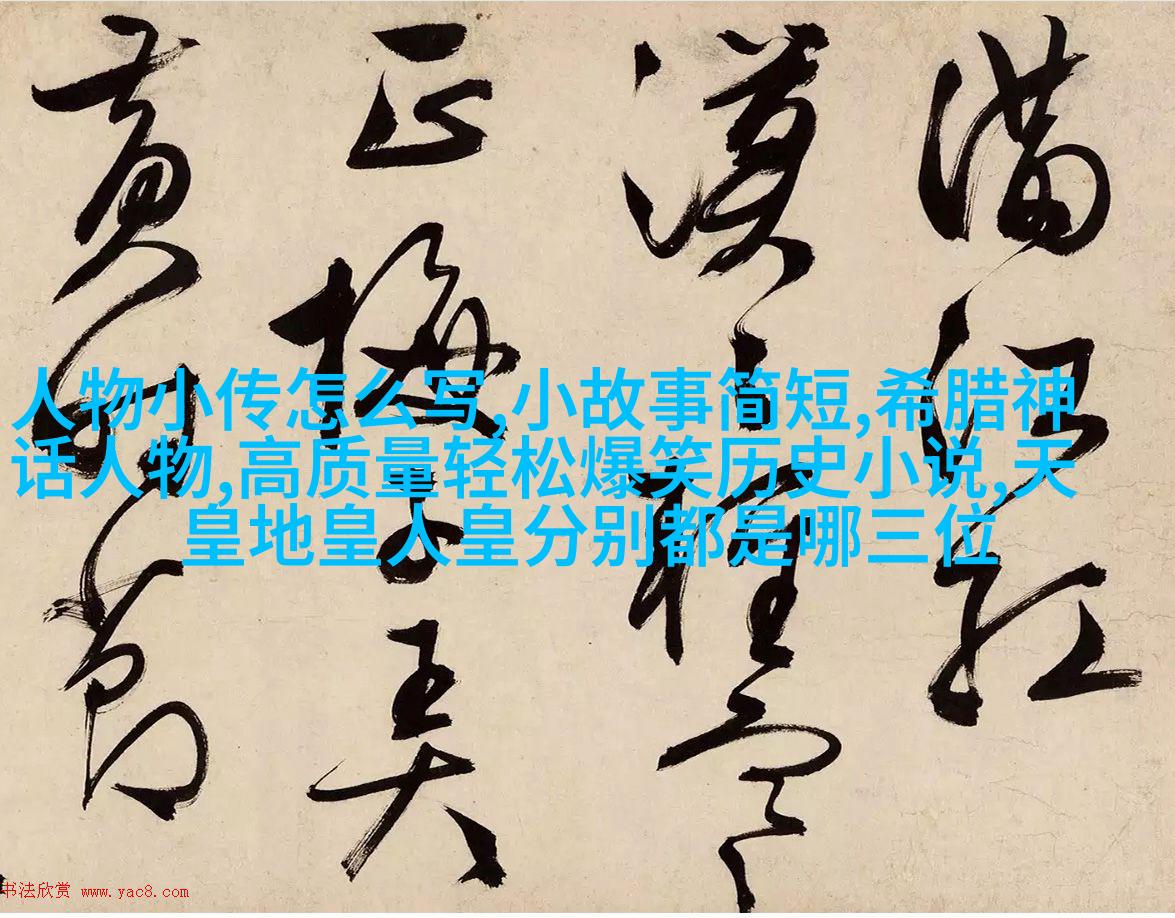 滿江紅
漠漠輕寒
正梅子弄
黃時節
人物小传怎么写,小故事简短,希腊神
话人物,高质量轻松爆笑历史小说,天
皇地皇人皇分别都是哪三位
书法欣赏 www.yac8.com